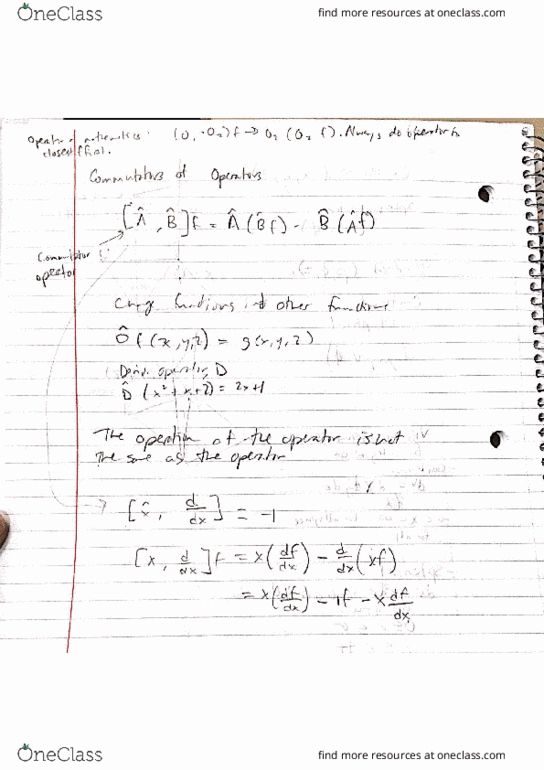 OneClass
find more resources at oneclass.com
Operator
(O₁ · O₂) f → O₁ (O₂ f). Always do operator
closest first.
Commutators of Operators
[Â, B̂]f = Â(B̂f) - B̂(Âf)
Commutator
operator
functions other functions
Ô f(x,y,z) = g(x,y,z)
operator, D
D̂ (x² + x + 2) = 2x+1
The operation of the operator is not
the same as the operator
[x̂, d/dx] = -1
[x, d/dx]f = x(df/dx) - d/dx(xf)
= x(df/dx) - 1f - x df/dx
OneClass
find more resources at oneclass.com